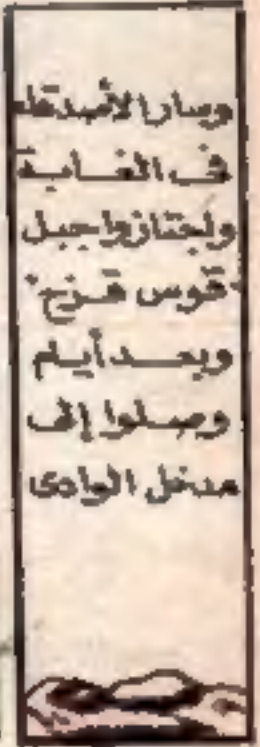 وسار الأصدقاء
فى الغابة
واجتازوا جبل
"قوس قزح"
وبعد أيام
وصلوا إلى
مدخل الوادى